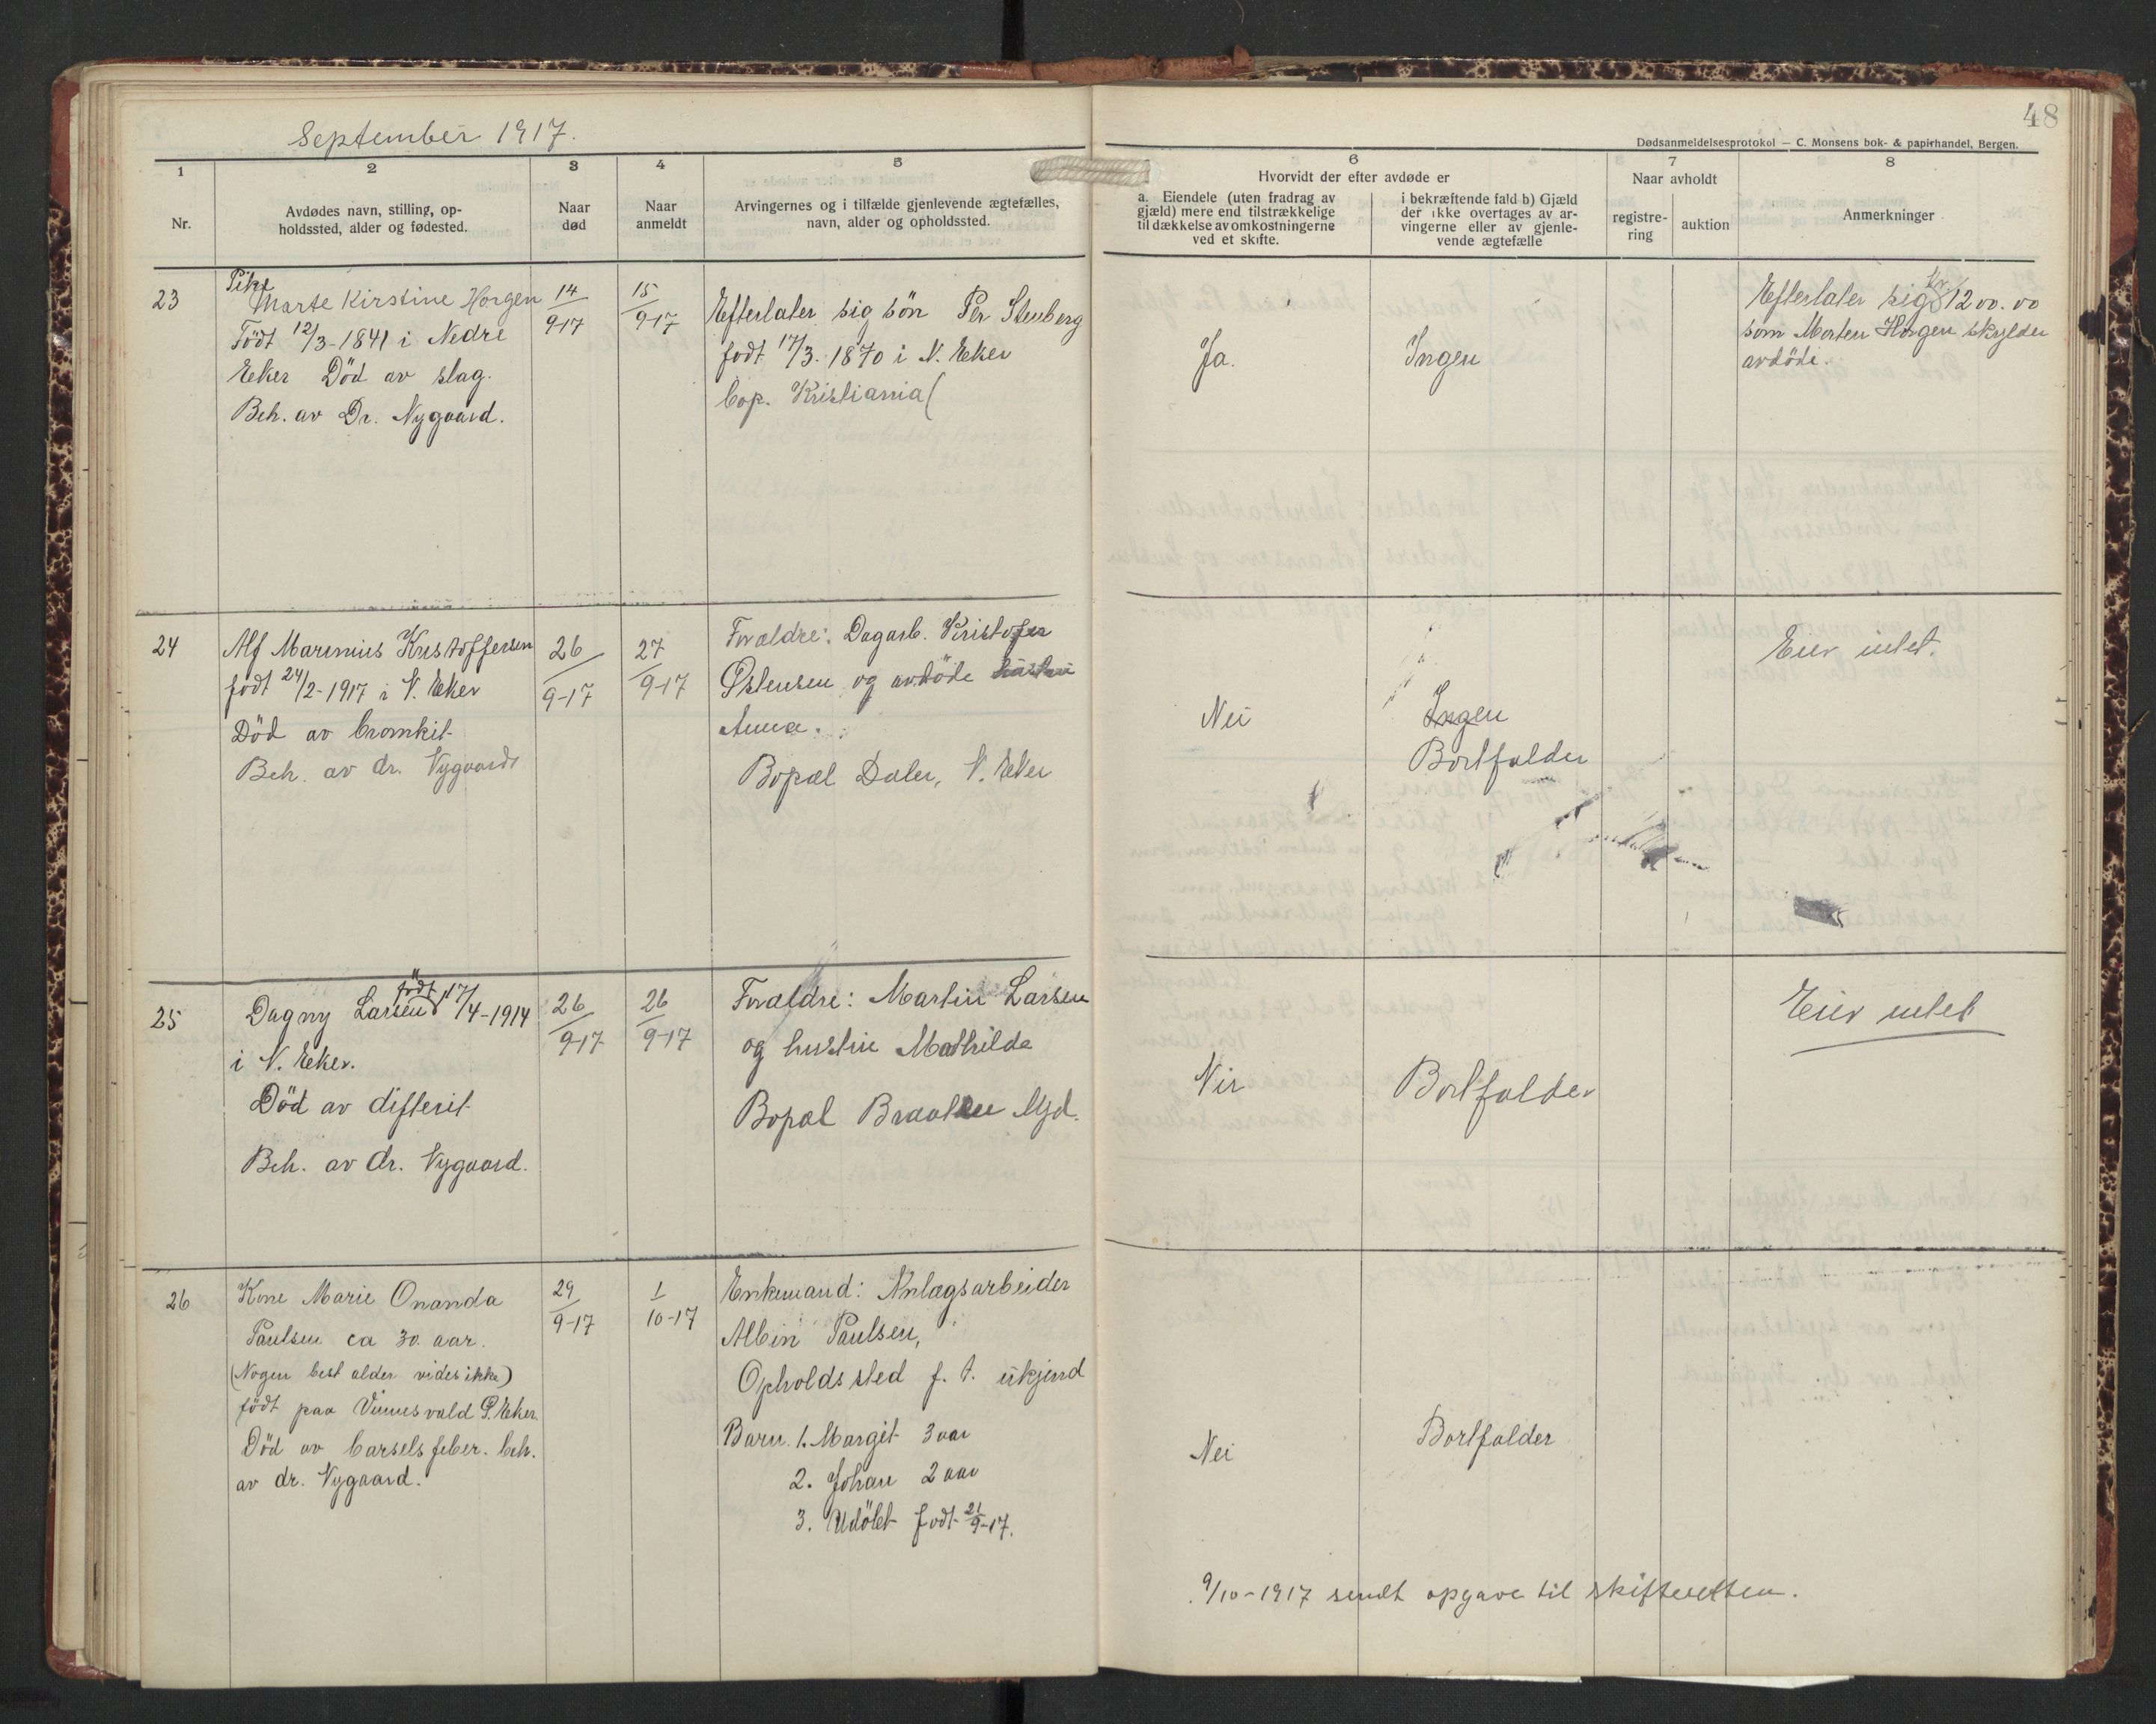 48
September 1917.
Dødsanmeldelsesprotokol — C. Monsens bok- & papirhandel, Bergen.
1
Nr.
2
Avdødes navn, stilling, op-
holdssted, alder og fødested.
3
Naar
død
4
Naar
anmeldt
5
Arvingernes og i tilfælde gjenlevende ægtefælles,
navn, alder og opholdssted.
6
Hvorvidt der efter avdøde er
a. Eiendele (uten fradrag av
gjæld) mere end tilstrækkelige
til dækkelse av omkostningerne
ved et skifte.
i bekræftende fald b) Gjæld
der ikke overtages av ar-
vingerne eller av gjenle-
vende ægtefælle
7
Naar avholdt
registre-
ring
auktion
8
Anmerkninger
23
Pike
Marte Kirstine Horgen
Født 12/3-1841 i Nedre
Eeker Död av slag.
Beh. av Dr. Nygaard.
14/9-17
15/9-17
Efterlater sig sön Per Stenberg
født 17/3. 1870 i N. Eeker
bop. Kristiania (
Ja.
Ingen
Efterlater sig kr. 1200.00
som Morten Horgen skylder
avdöde.
24
Alf Marinius Kristoffersen
født 24/2-1917 i N. Eeker
Död av bronkit
Beh. av dr. Nygaard
26/9-17
27/9-17
Forældre: Dagarb. Kristofer
Østensen og avdöde hustru
Anna.
Bopæl Daler, N. Eeker
Nei
Ingen
Bortfalder
Eier intet.
25
Dagny Larsen født 17/4-1914
i N. Eeker.
Död av difterit
Beh. av dr. Nygaard.
26/9-17
26/9-17
Forældre: Martin Larsen
og hustru Mathilde
Bopæl Braaten Mjd.
Nei
Bortfalder
Eier intet
26
Kone Marie Onanda
Paulsen ca 30 aar.
(Nogen best alder vides ikke)
født paa Vimesvold Ø. Eeker.
Död av barselsfeber. beh.
av dr. Nygaard.
29/9-17
1/10-17
Enkemand: Anlægsarbeider
Albin Paulsen,
Opholdssted f. t. ukjend
Barn. 1. Margit 3 aar
2. Johan 2 aar
3. Udöbt født 21/9-17.
Nei
Bortfalder
9/10-1917 sendt opgave til skifteretten.